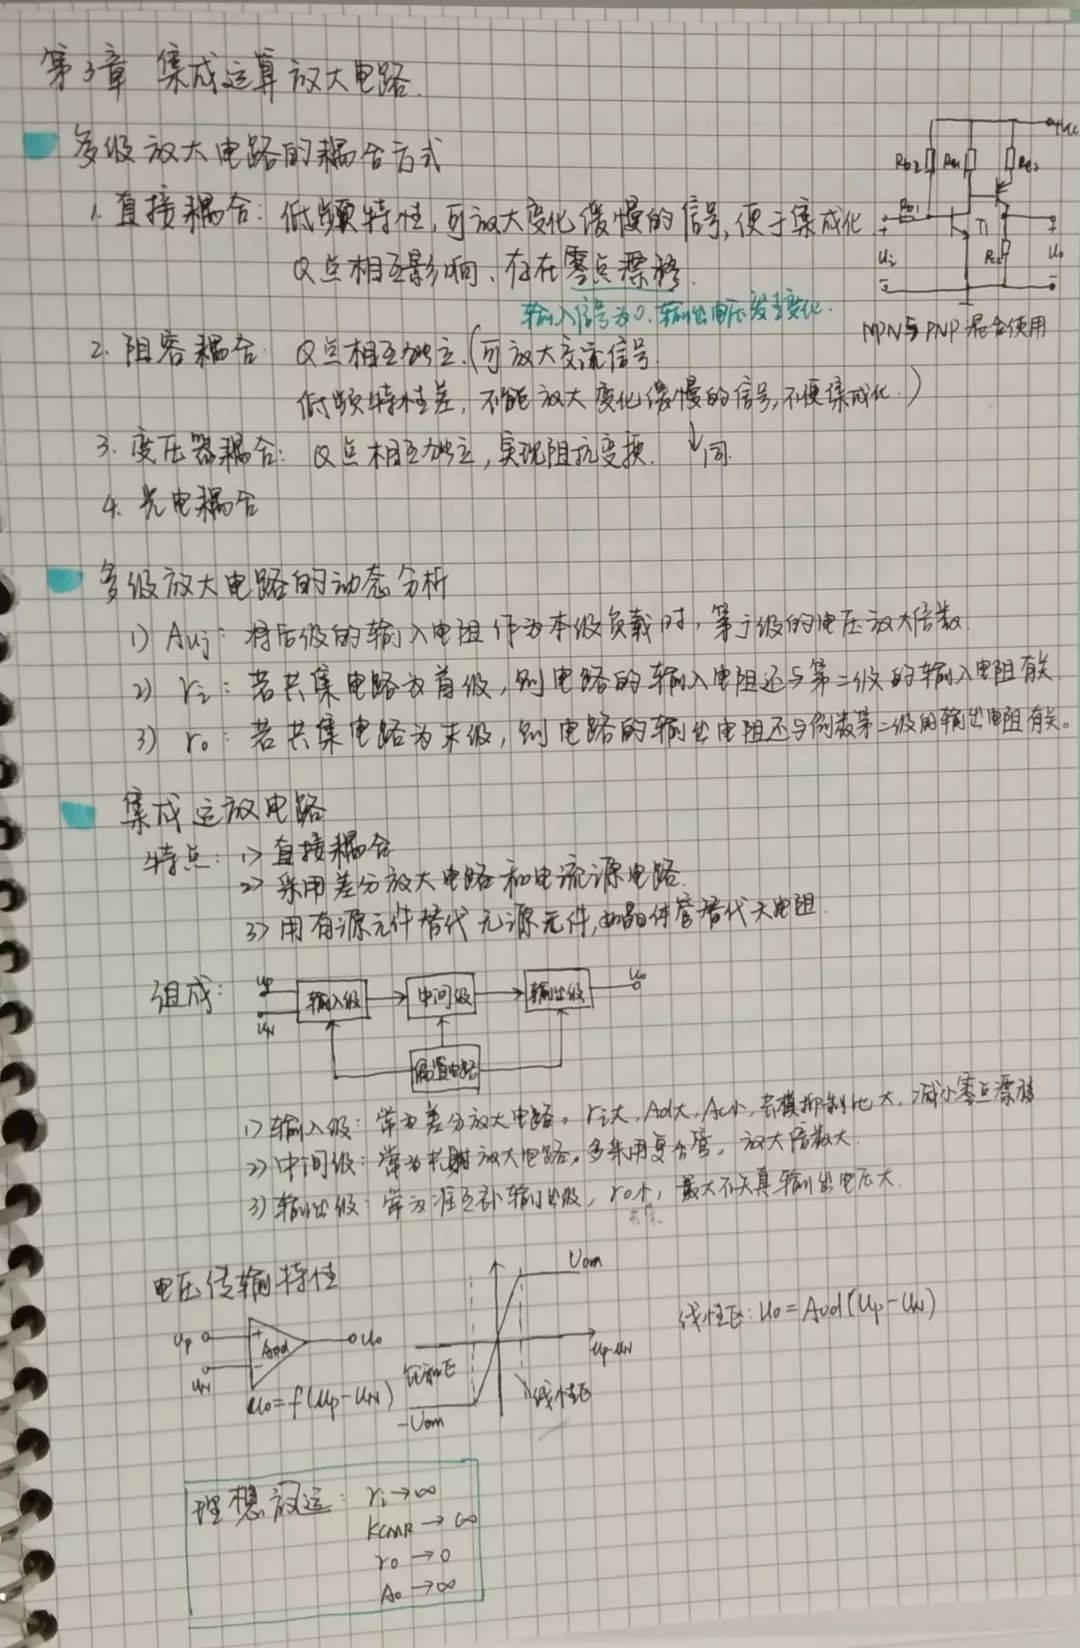 第3章 集成运算放大电路.
多级放大电路的耦合方式
1. 直接耦合: 低频特性,可放大变化缓慢的信号,便于集成化
Q点相互影响、存在零点漂移.
输入信号为0,输出电压发生变化.
+Vcc
Rb2 Rc1 Re2
Rb1
T1
Rc2
+ Ui −
+ Uo −
NPN与PNP混合使用
2. 阻容耦合: Q点相互独立.(可放大交流信号.
低频特性差, 不能放大变化缓慢的信号,不便集成化.)
3. 变压器耦合: Q点相互独立,实现阻抗变换. ↓同.
4. 光电耦合
多级放大电路的动态分析
1) Auj: 将后级的输入电阻作为本级负载时, 等于级的电压放大倍数.
2) ri: 若共集电路为首级, 则电路的输入电阻还与第二级的输入电阻有关
3) ro: 若共集电路为末级, 则电路的输出电阻还与倒数第二级的输出电阻有关。
集成运放电路
特点: 1> 直接耦合
2> 采用差分放大电路和电流源电路.
3> 用有源元件替代无源元件,如晶体管替代大电阻.
组成: uP uN 输入级 → 中间级 → 输出级 uo
偏置电路
1> 输入级: 常为差分放大电路。ri大, Ad大, Ac小, 共模抑制比大, 减小零点漂移
2> 中间级: 常为共射放大电路, 多采用复合管。放大倍数大.
3> 输出级: 常为准互补输出级, ro小, 最大不失真输出电压大.
电压传输特性
uP + Aod − uN uo
uo=f(uP-uN)
Uom
uP-uN
饱和区
线性区
-Uom
线性区: uo=Aod(uP-uN)
理想放运: ri→∞
KCMR→∞
ro→0
Ao→∞